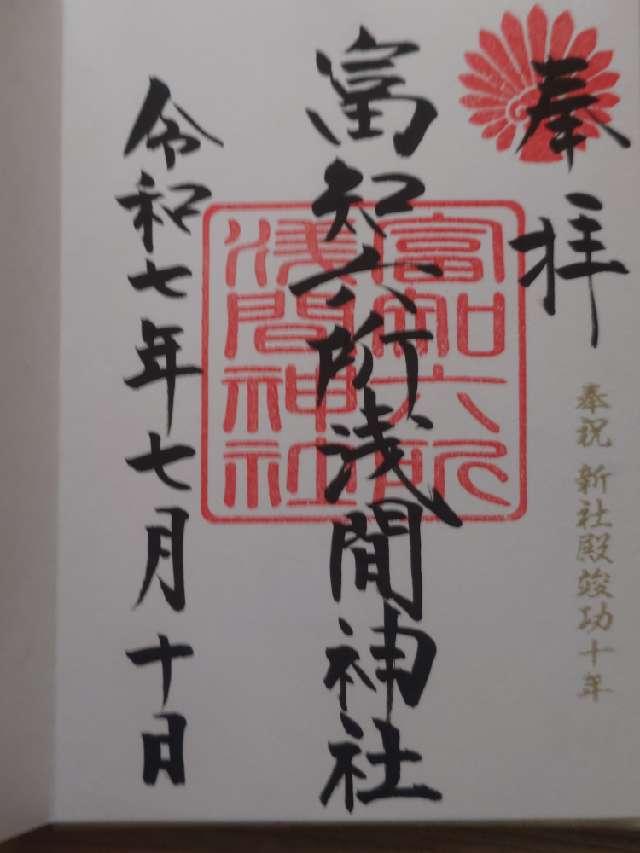 奉拝
奉祝 新社殿竣功十年
富知六所浅間神社
富知六所
浅間神社
令和七年七月十日